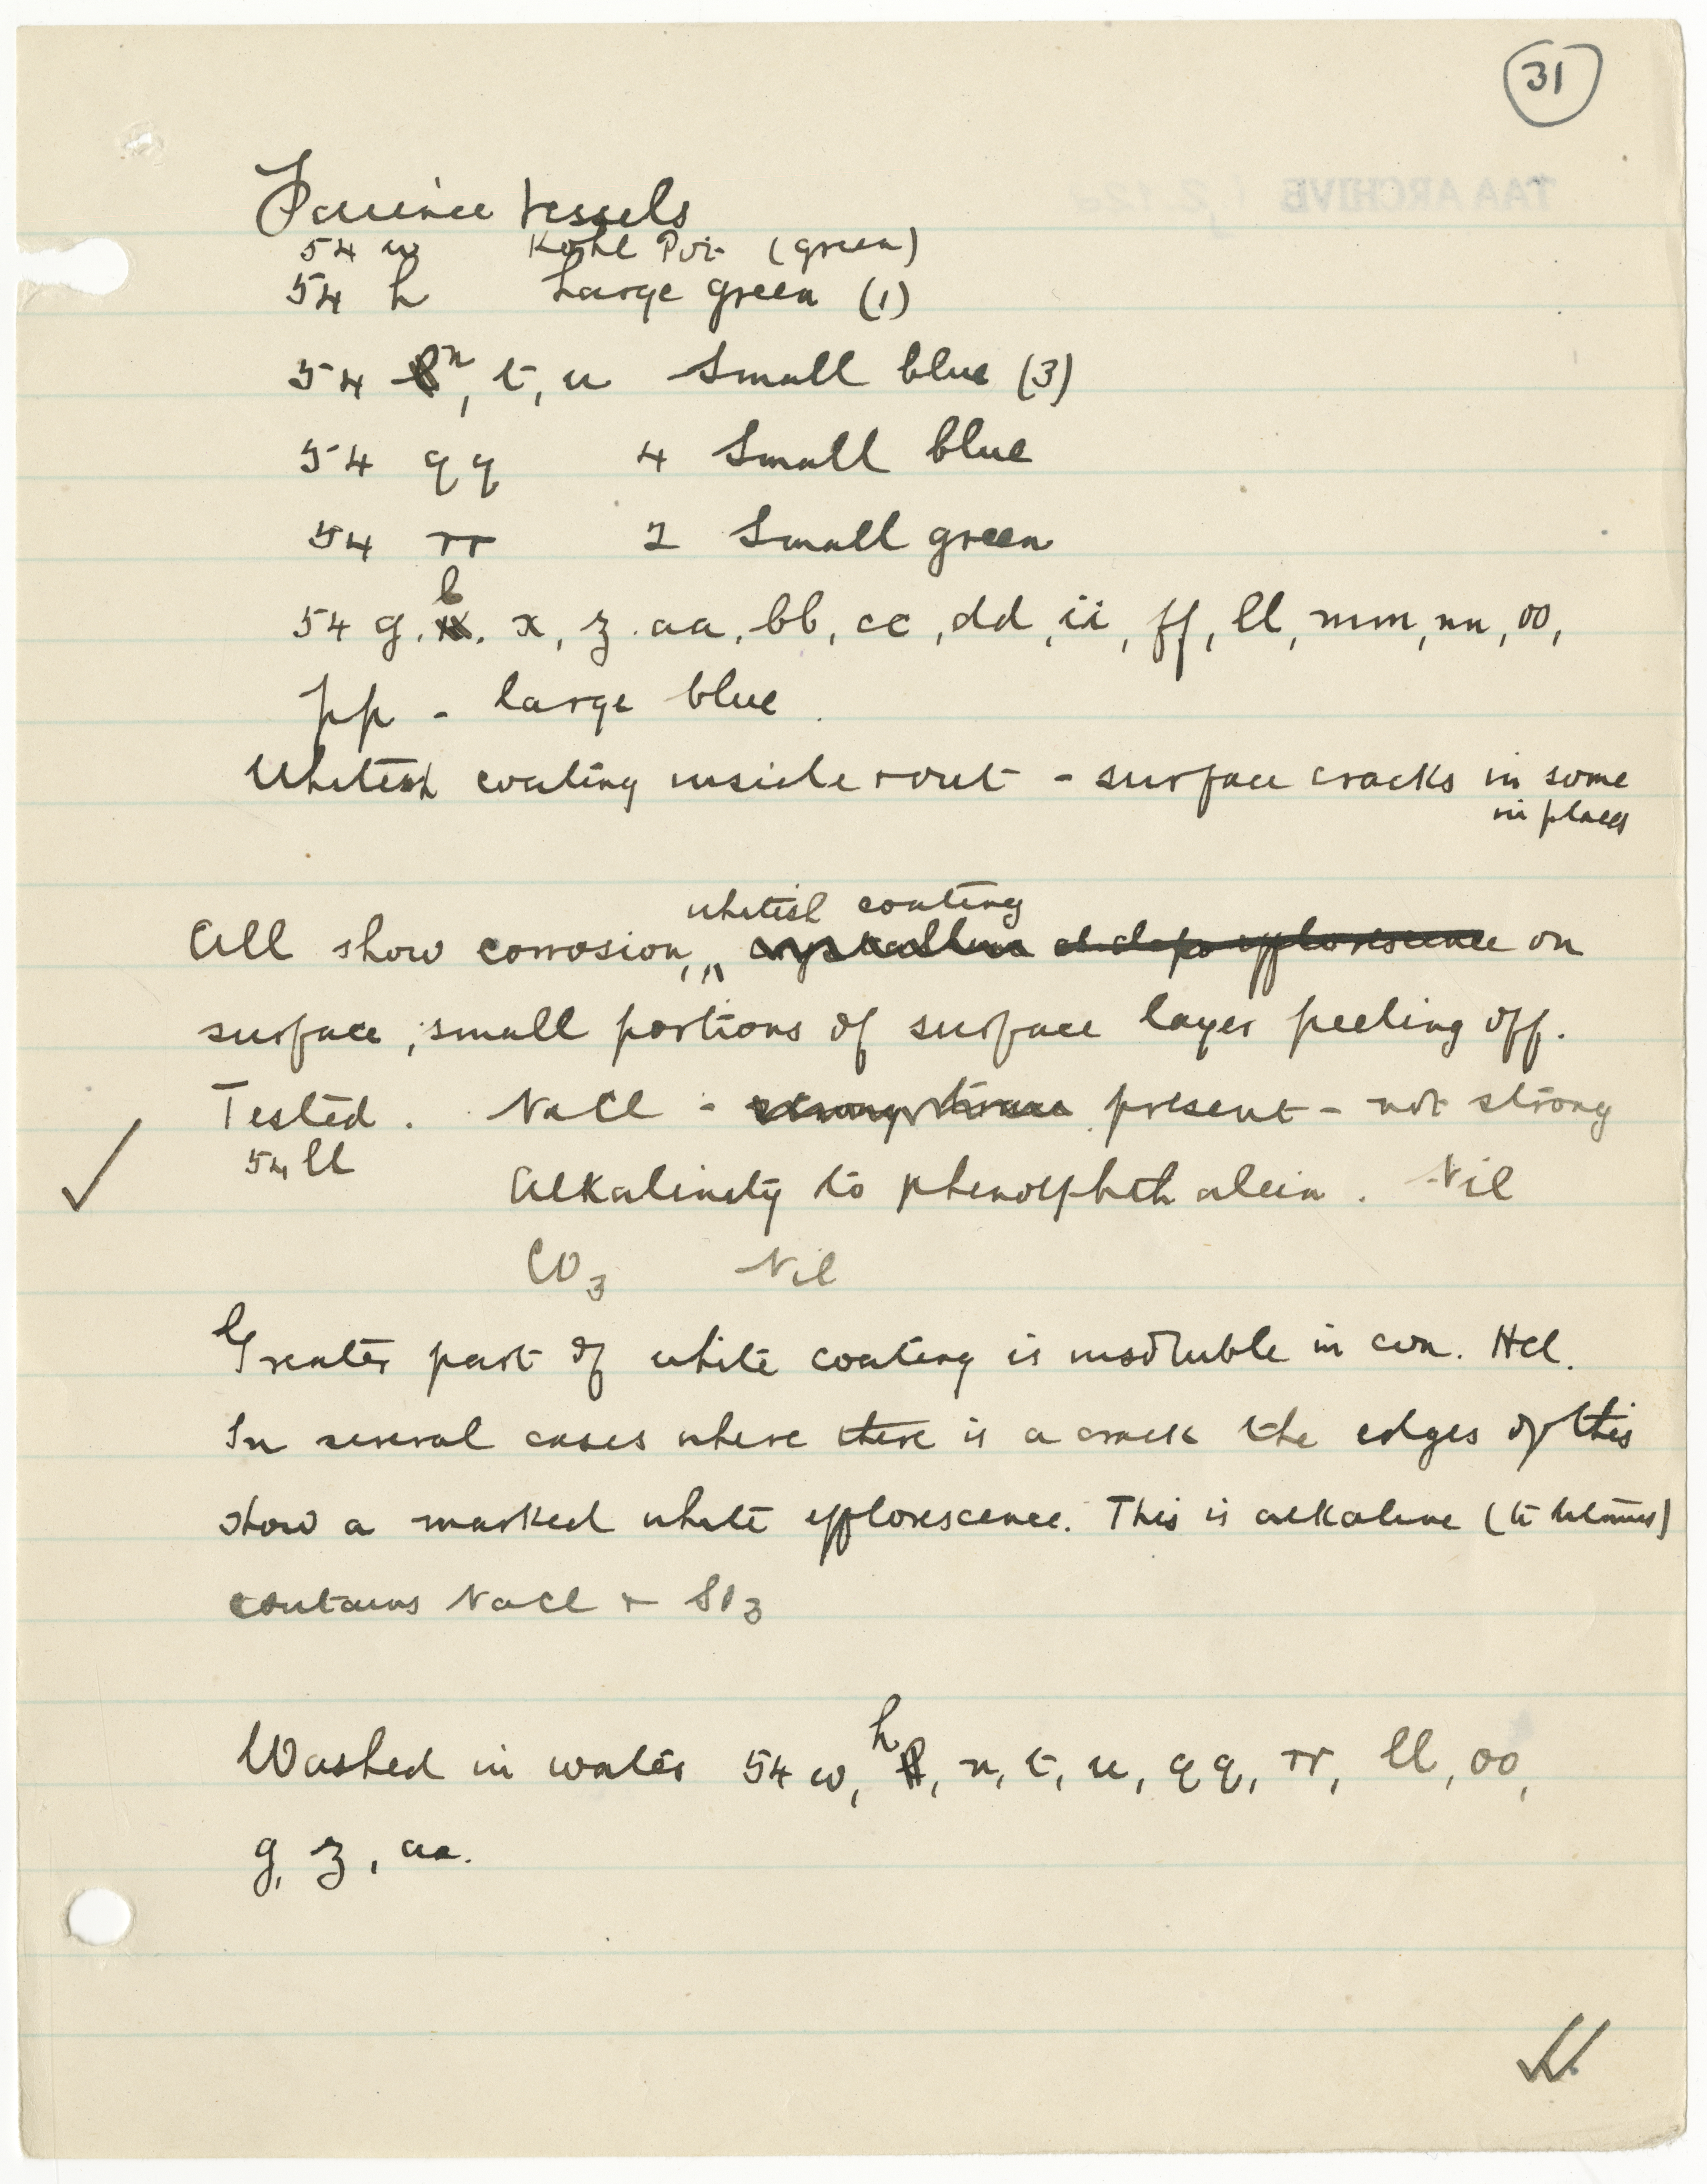 31
TAA ARCHIVE
Faience Vessels
54 w Kohl Pot (green)
54 h Large green (1)
54 n, t, u Small blue (3)
54 qq 4 Small blue
54 rr 2 Small green
b
54 g, x, z, aa, bb, cc, dd, ii, ff, ll, mm, nn, oo,
pp - large blue.
Whitish coating inside + out - surface cracks in some
in places
whitish coating
All show corrosion, crystalline efflorescence on
surface; small portions of surface layer peeling off.
Tested. NaCl - strong traces present - not strong
54 ll
Alkalinity to phenolphthalein. Nil
CO3 Nil
Greater part of white coating is insoluble in con. HCl.
In several cases where there is a crack the edges of this
show a marked white efflorescence. This is alkaline (to litmus)
contains NaCl + SO3
h
Washed in water 54 w, n, t, u, qq, rr, ll, oo,
g, z, aa.